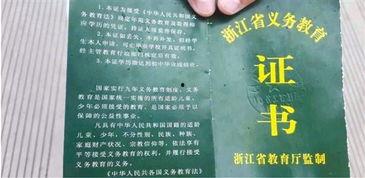 1. 本证为接受《中华人民共和国
义务教育法》规定年限义务教育及取得相
应学历的凭证,持证人须妥善保存。
2. 本证如丢失,不再补发,但持学
生本人申请,可由毕业学校开具证明书,
经主管教育行政部门核定后有效。
3. 本证学历级达到初中毕业成绩处。
国家实行九年义务教育制度。义务
教育是国家统一实施的所有适龄儿童、
少年必须接受的教育,是国家必须予以
保障的公益性事业。
凡具有中华人民共和国国籍的适龄
儿童、少年,不分性别、民族、种族、
家庭财产状况、宗教信仰等,依法享有
平等接受义务教育的权利,并履行接受
义务教育的义务。
《中华人民共各国义务教育法》
浙江省义务教育
证
书
浙江省教育厅监制